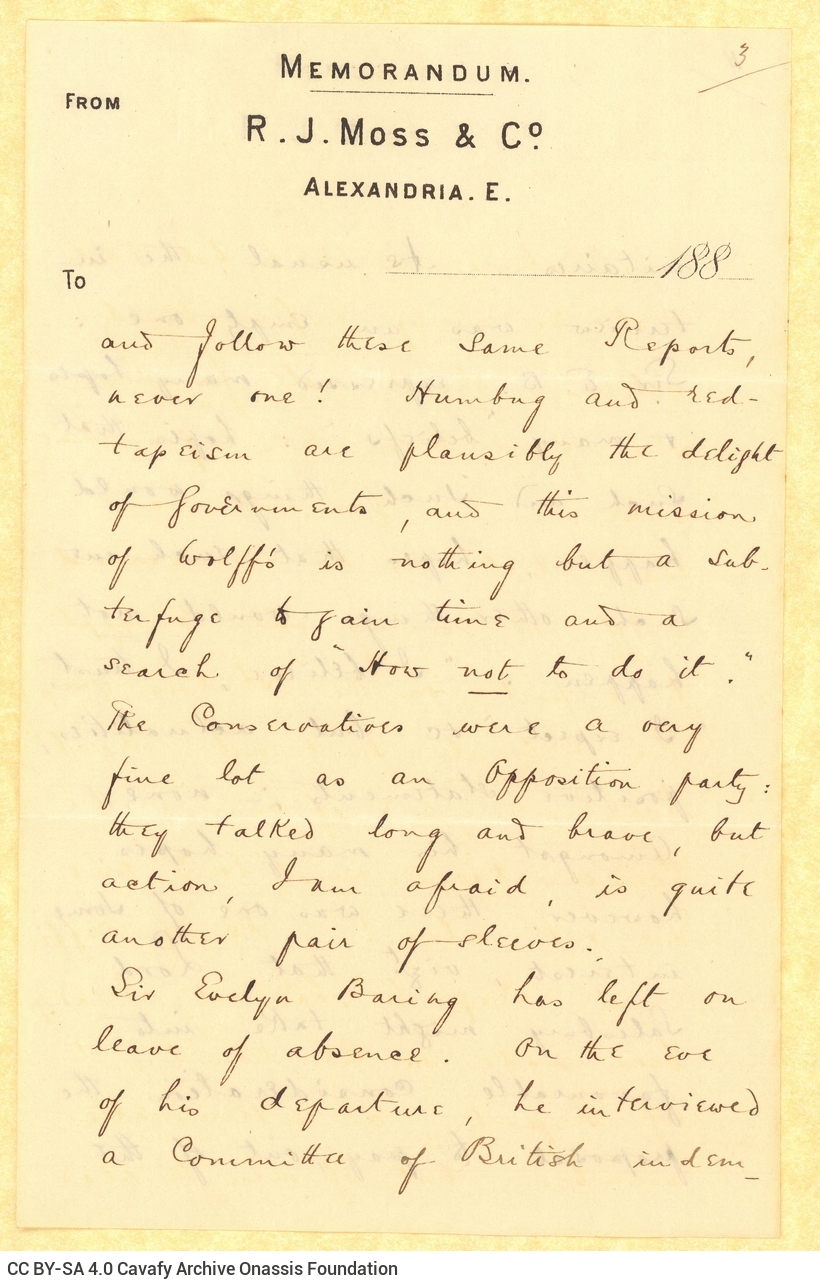 3
MEMORANDUM.
FROM
R. J. MOSS & Cº.
ALEXANDRIA. E.
188
To
and follow these same Reports,
never one! Humbug and red-
tapeism are plausibly the delight
of Governments, and this mission
of Wolff's is nothing but a sub-
terfuge to gain time and a
search of "How not to do it."
The Conservatives were a very
fine lot as an Opposition party:
they talked long and brave, but
action, I am afraid, is quite
another pair of sleeves.
Sir Evelyn Baring has left on
leave of absence. On the eve
of his departure, he interviewed
a Committee of British indem-
CC BY-SA 4.0 Cavafy Archive Onassis Foundation